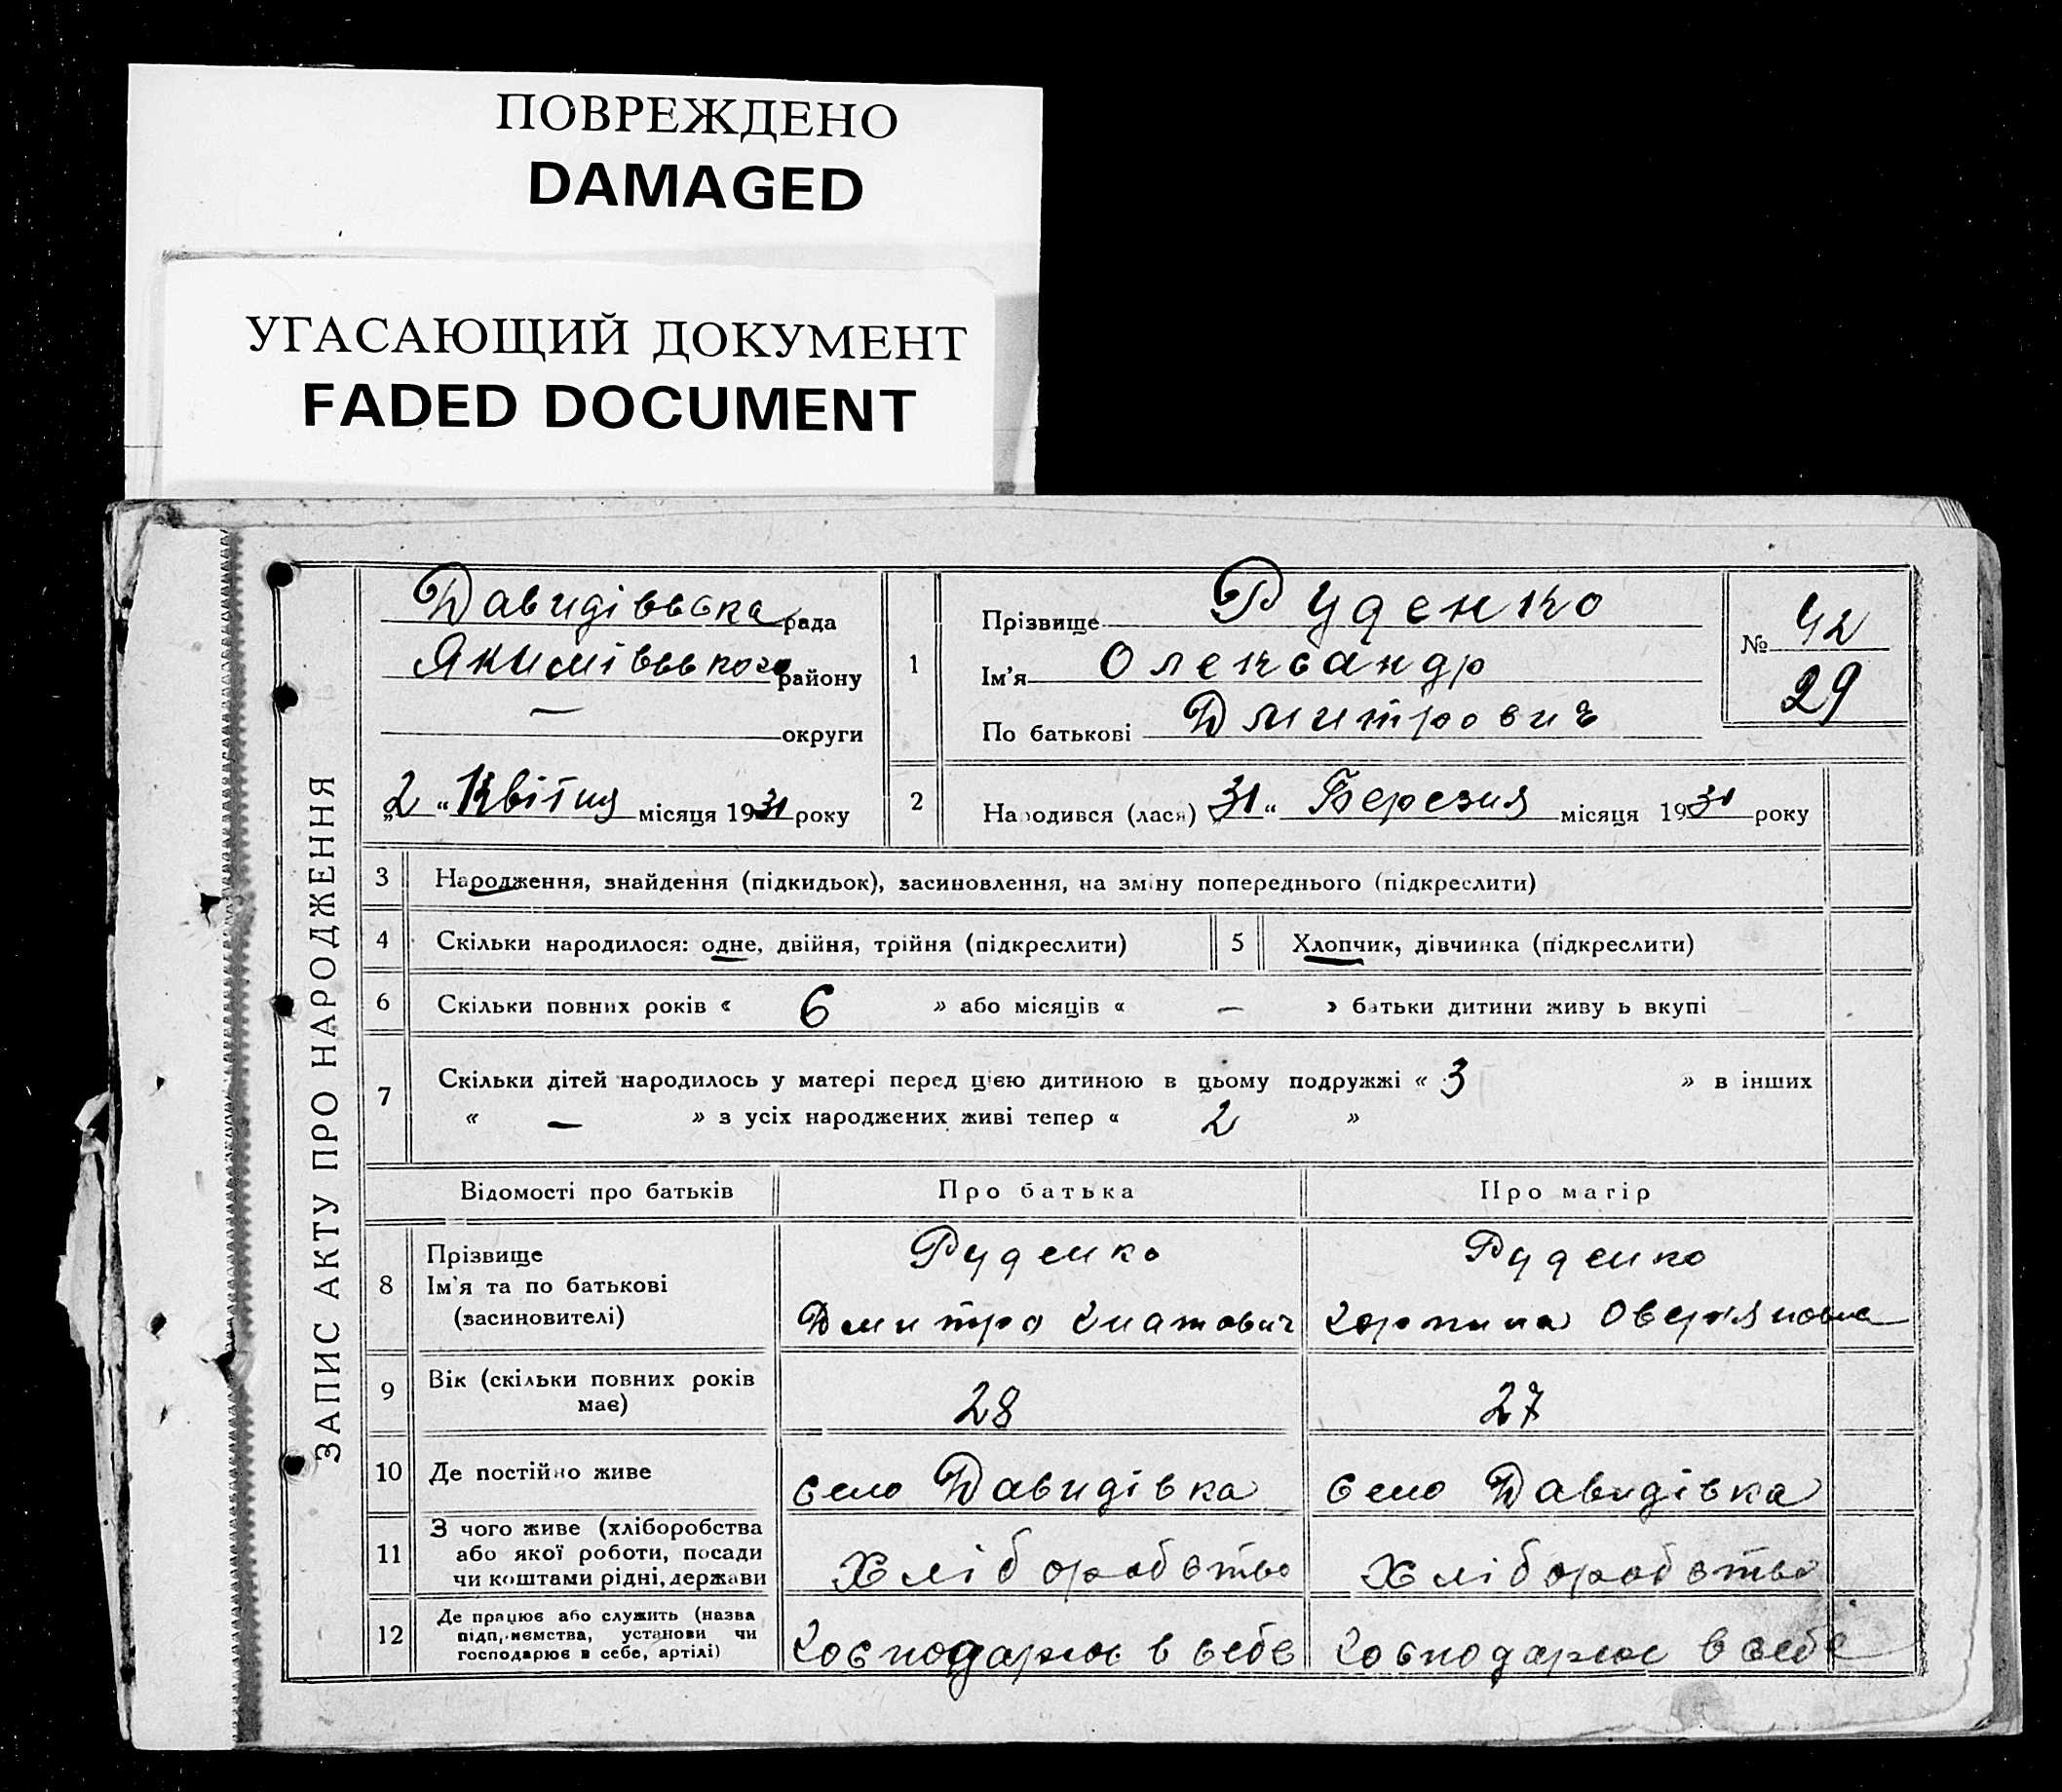 ПОВРЕЖДЕНО
DAMAGED
УГАСАЮЩИЙ ДОКУМЕНТ
FADED DOCUMENT
ЗАПИС АКТУ ПРО НАРОДЖЕННЯ
Давидівська рада
Якимівського району
— округи
„2 “ Квітня місяця 1931 року
1
Прізвище Руденко
Ім'я Олександр
По батькові Дмитрович
№ 42
29
2 Народився (лася) „31 “ Березня місяця 1931 року
3 Народження, знайдення (підкидьок), засиновлення, на зміну попереднього (підкреслити)
4 Скільки народилося: одне, двійня, трійня (підкреслити) 5 Хлопчик, дівчинка (підкреслити)
6 Скільки повних років « 6 » або місяців « — » батьки дитини живу ь вкупі
7 Скільки дітей народилось у матері перед цією дитиною в цьому подружжі « 3 » в інших
« — » з усіх народжених живі тепер « 2 »
Відомості про батьків Про батька Про матір
8 Прізвище Руденко Руденко
Ім'я та по батькові
(засиновителі) Дмитро Гнатович Горпина Оверяновна
9 Вік (скільки повних років
має) 28 27
10 Де постійно живе село Давидівка село Давидівка
11 З чого живе (хліборобства
або якої роботи, посади
чи коштами рідні, держави Хліборобство Хліборобство
12 Де працює або служить (назва
підприємства, установи чи
господарює в себе, артілі) Господарює в себе Господарює в себе